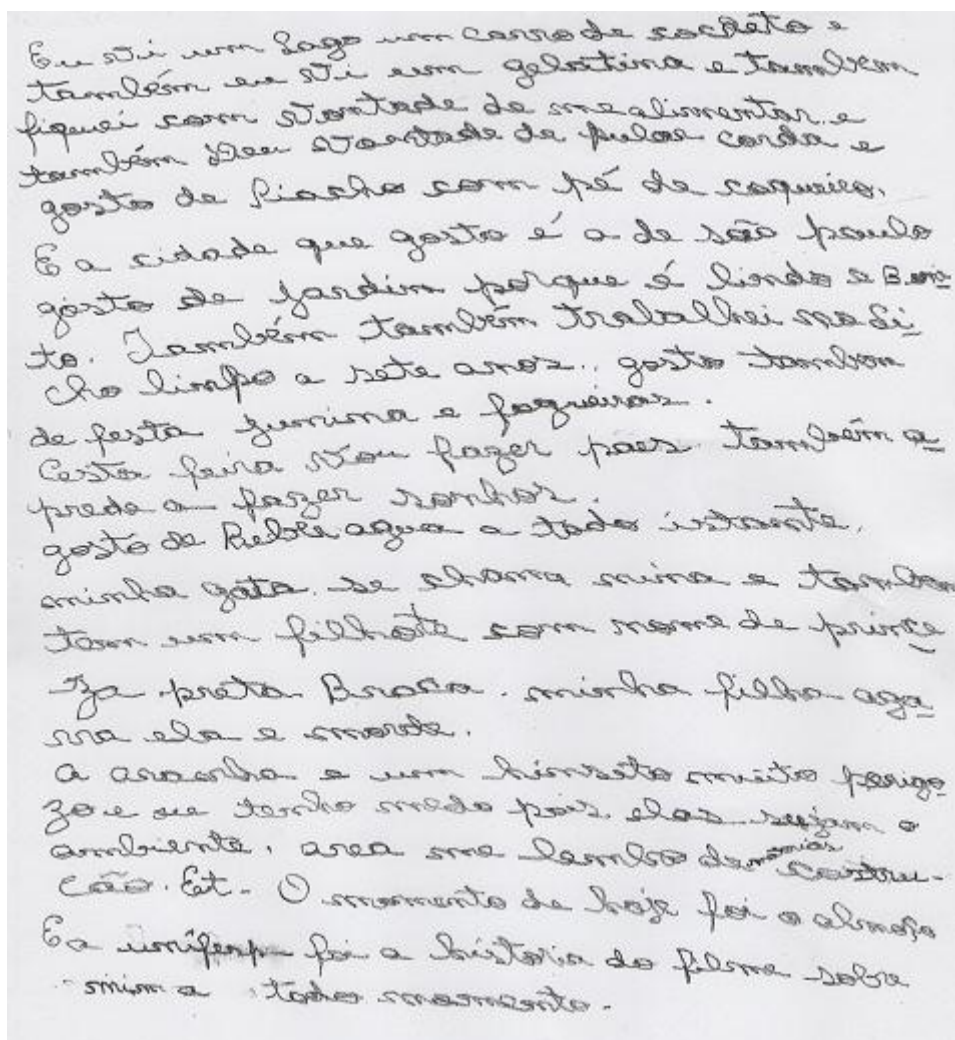 Eu vi um Lago um carro de sochêto e
também eu vi um gelatina e tambem
fiquei com vontade de me alimentar. e
também deu vontade de pular corda e
gosto de Riacho com pé de coqueiro.
E a cidade que gosto é a de são paulo
gosto de jardim porque é lindo e Boni
to. Também também trabalhei no Li
cho limpo a sete anos.. gosto tambem
de festa junina e fogueiras.
Cesta feira vou fazer paes também a
prede a fazer sonhos.
gosto de Beber agua a todo istante.
minha gata. se chama mina e tambem
tem um filhote com nome de prince
za preta Branca. minha filha aga
rra ela e morde.
a aranha e um himseto muito perigo
zo e eu tenho medo pois elas sujam o
ambiente. area me lembo de costru-
ção. Et. O momento de hoje foi o almoço
E a unifesp foi a historia do filme sobre
mim a todo momento.